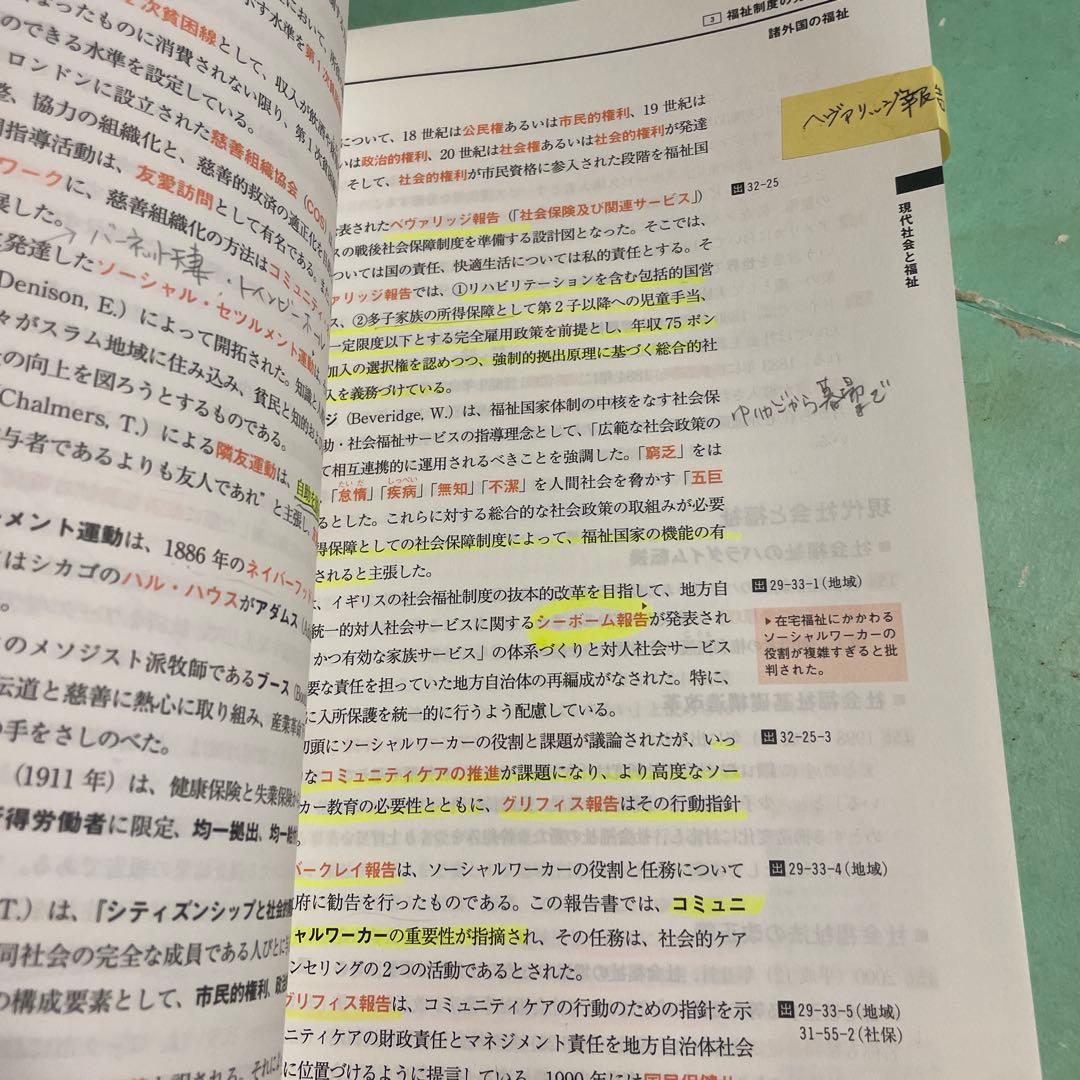 次貧困線として、収入が
なったものに消費されない限り、第1次貧困
のできる水準を設定している。
ロンドンに設立された慈善組織協会(COS)
協力の組織化と、慈善的救済の適正化を
指導活動は、友愛訪問として有名である。
ワークに、慈善組織化の方法はコミュニティ
展した。
発達したソーシャル・セツルメント運動は、
Denison, E.)によって開拓された。知識と
々がスラム地域に住み込み、貧民と知的および
の向上を図ろうとするものである。
Chalmers, T.)による隣友運動は、自助
与者であるよりも友人であれ"と主張し、
メント運動は、1886年のネイバーフッド
はシカゴのハル・ハウスがアダムス
のメソジスト派牧師であるブース
伝道と慈善に熱心に取り組み、産業革命
手をさしのべた。
(1911年)は、健康保険と失業保険
得労働者に限定、均一拠出、均一給
T.)は、『シティズンシップと社会的
同社会の完全な成員である人びとに
の構成要素として、市民的権利、政治
3 福祉制度の
諸外国の福祉
ヘヴァリッジ報告
について、18世紀は公民権あるいは市民的権利、19世紀は
いは政治的権利、20世紀は社会権あるいは社会的権利が発達
そして、社会的権利が市民資格に参入された段階を福祉国
表されたベヴァリッジ報告(「社会保険及び関連サービス」)
出 32-25
スの戦後社会保障制度を準備する設計図となった。そこでは、
ついては国の責任、快適生活については私的責任とする。そ
ァリッジ報告では、①リハビリテーションを含む包括的国営
ス、②多子家族の所得保障として第2子以降への児童手当、
一定限度以下とする完全雇用政策を前提とし、年収75ポン
加入の選択権を認めつつ、強制的拠出原理に基づく総合的社
入を義務づけている。
ジ(Beveridge, W.)は、福祉国家体制の中核をなす社会保
助・社会福祉サービスの指導理念として、「広範な社会政策の
て相互連携的に運用されるべきことを強調した。「窮乏」をは
「怠惰」「疾病」「無知」「不潔」を人間社会を脅かす「五巨
るとした。これらに対する総合的な社会政策の取組みが必要
得保障としての社会保障制度によって、福祉国家の機能の有
されると主張した。
ゆりかごから墓場まで
現代社会と福祉
、イギリスの社会福祉制度の抜本的改革を目指して、地方自
出 29-33-1(地域)
統一的対人社会サービスに関するシーボーム報告が発表され
かつ有効な家族サービス」の体系づくりと対人社会サービス
要な責任を担っていた地方自治体の再編成がなされた。特に、
に入所保護を統一的に行うよう配慮している。
▶在宅福祉にかかわる
ソーシャルワーカーの
役割が複雑すぎると批
判された。
初頭にソーシャルワーカーの役割と課題が議論されたが、いっ
出 32-25-3
なコミュニティケアの推進が課題になり、より高度なソー
カー教育の必要性とともに、グリフィス報告はその行動指針
バークレイ報告は、ソーシャルワーカーの役割と任務について
出 29-33-4(地域)
府に勧告を行ったものである。この報告書では、コミュニ
ャルワーカーの重要性が指摘され、その任務は、社会的ケア
ンセリングの2つの活動であるとされた。
グリフィス報告は、コミュニティケアの行動のための指針を示
出 29-33-5(地域)
31-55-2(社保)
ニティケアの財政責任とマネジメント責任を地方自治体社会
に位置づけるように提言している。1990年には国民保健サ